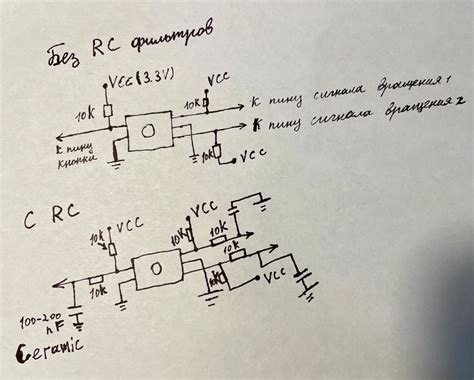 Без RC фильтров
VCC (3.3V)
VCC
10K
10K
к пину сигнала вращения 1
к пину сигнала вращения 2
к пину
кнопки
10K
VCC
С RC
VCC
VCC
10K
10K
10K
10K
10K
10K
VCC
100-200
nF
Ceramic